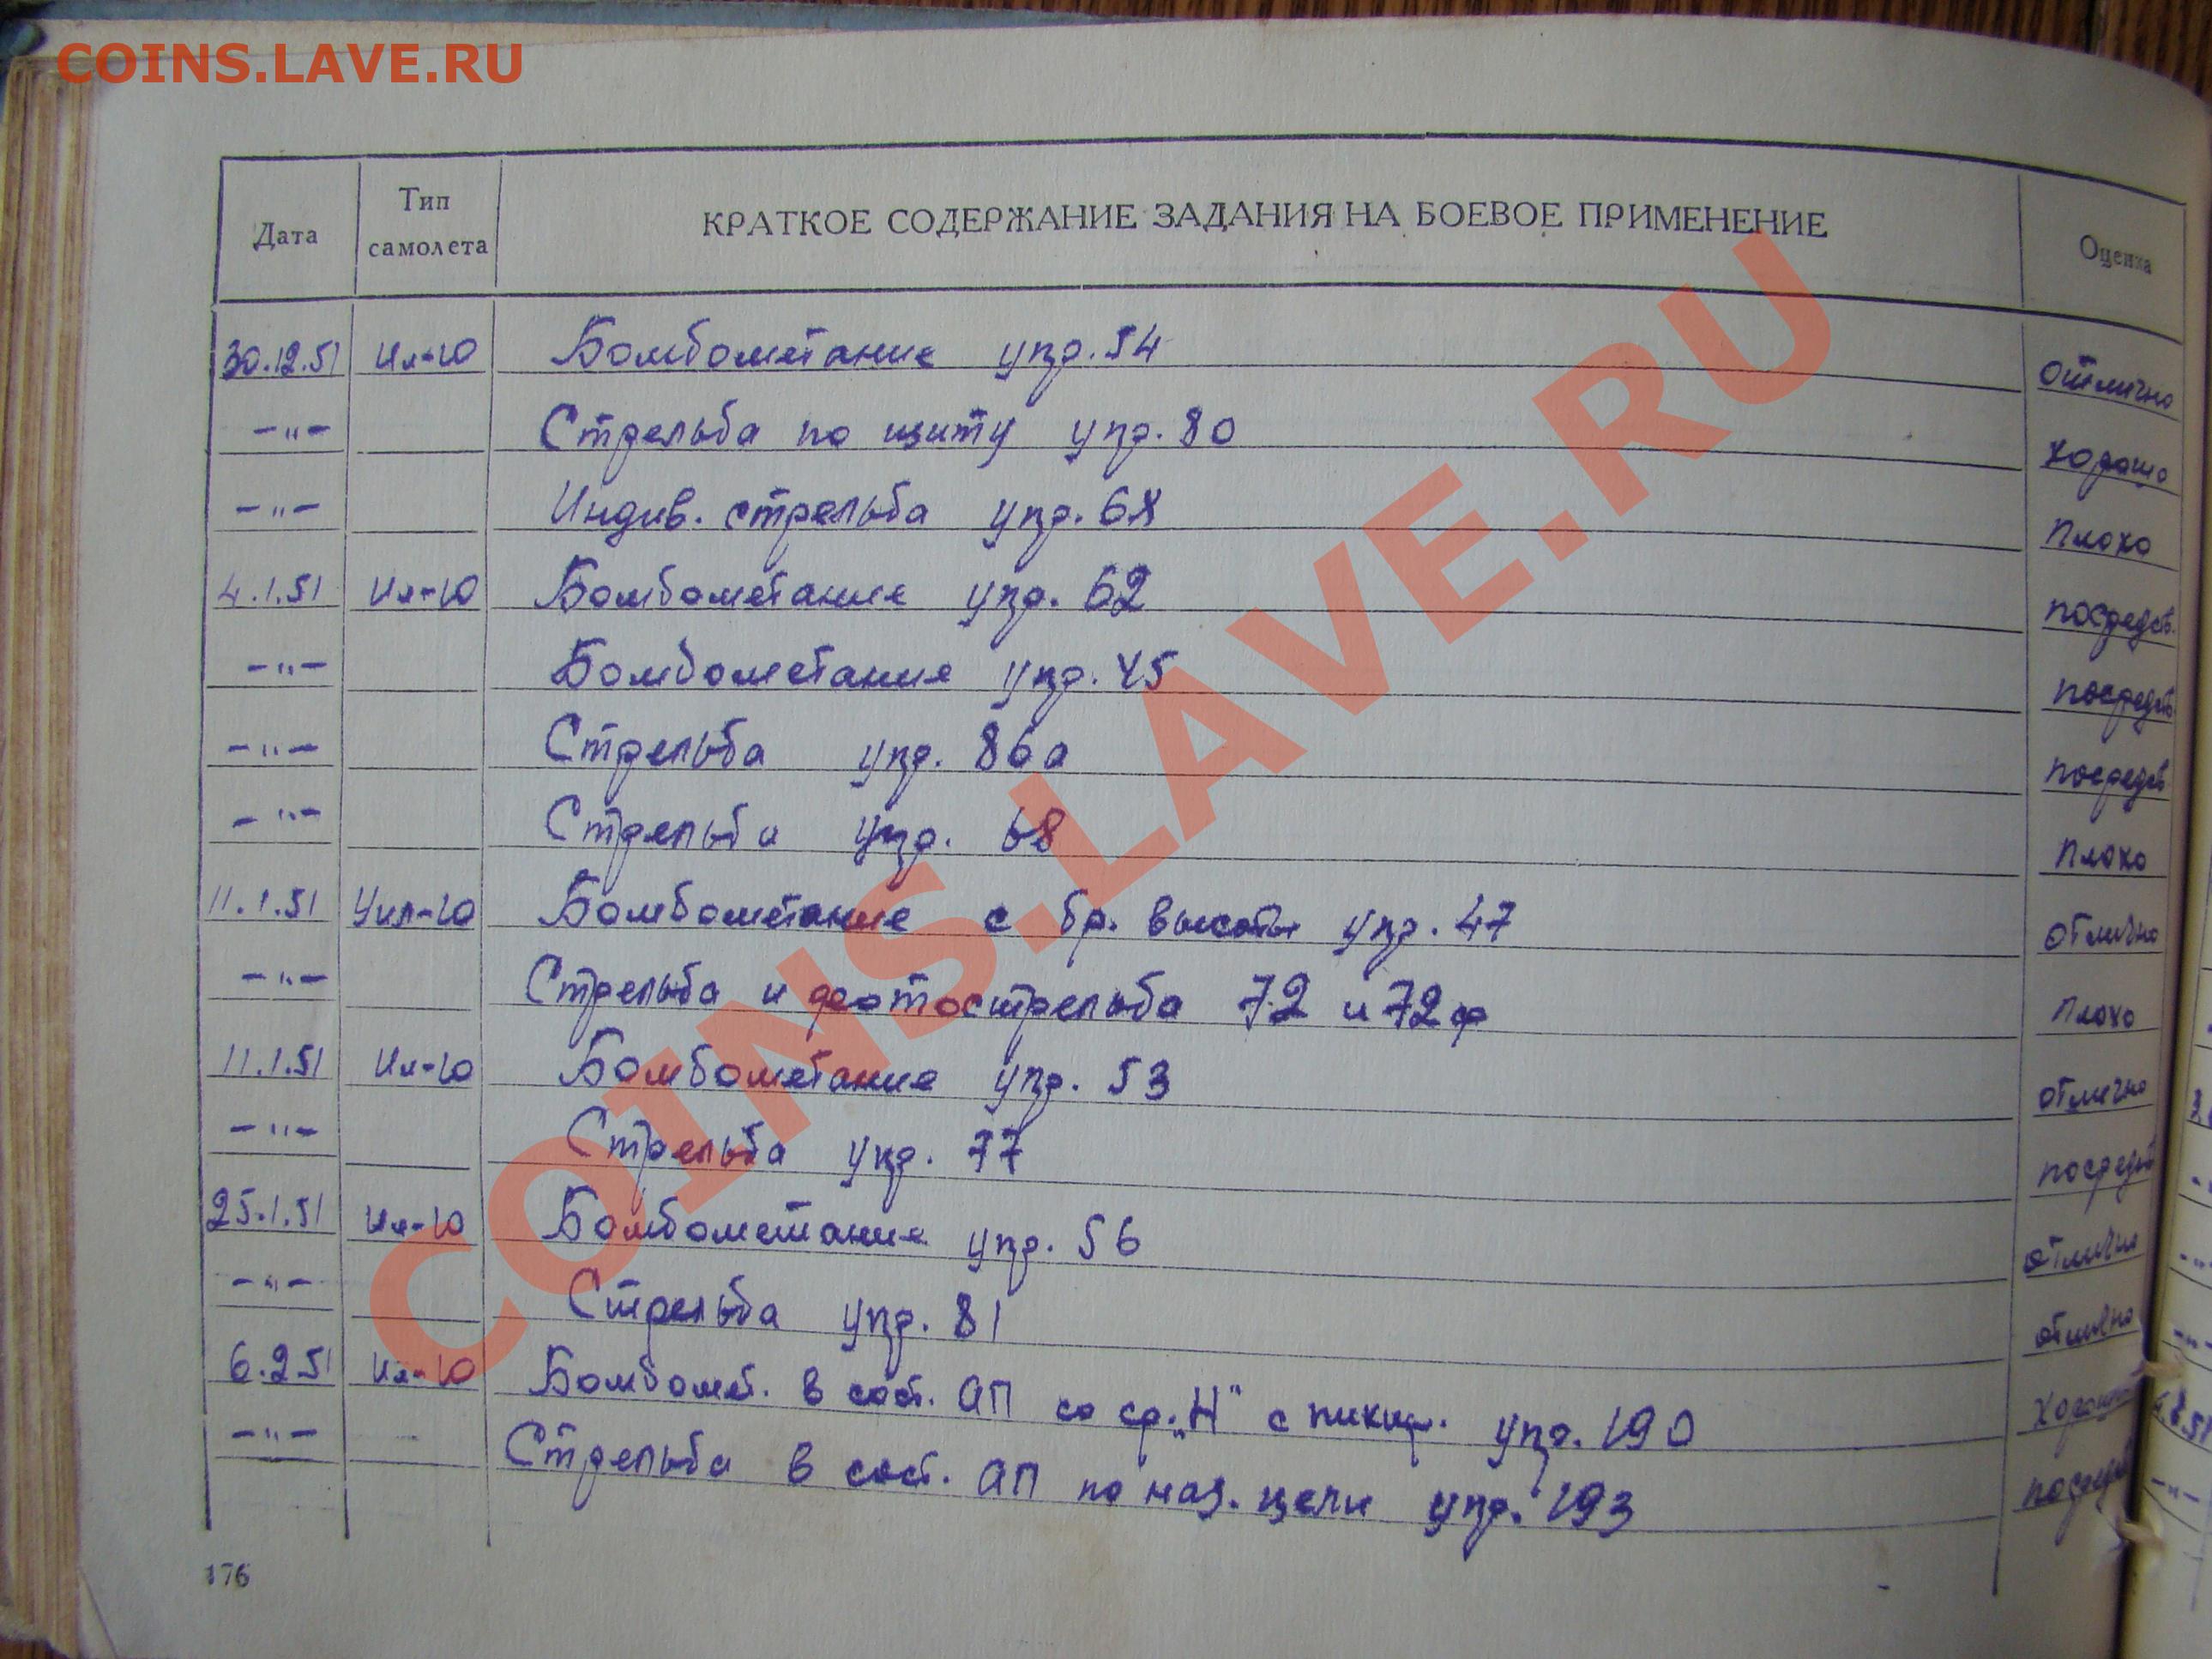 COINS.LAVE.RU
Дата Тип самолета КРАТКОЕ СОДЕРЖАНИЕ ЗАДАНИЯ НА БОЕВОЕ ПРИМЕНЕНИЕ Оценка
30.12.51 Ил-10 Бомбометание упр. 54 отлично
–"– Стрельба по щиту упр. 80 хорошо
–"– Индив. стрельба упр. 68 плохо
4.1.51 Ил-10 Бомбометание упр. 62 посредств.
–"– Бомбометание упр. 45 посредств.
–"– Стрельба упр. 86а посредств
–"– Стрельба упр. 68 плохо
11.1.51 Уил-10 Бомбометание с бр. высоты упр. 47 отлично
–"– Стрельба и фотострельба 72 и 72ф плохо
11.1.51 Ил-10 Бомбометание упр. 53 отлично
–"– Стрельба упр. 77 посредств
25.1.51 Ил-10 Бомбометание упр. 56 отлично
–"– Стрельба упр. 81 отлично
6.2.51 Ил-10 Бомбомет. в сост. АП со ср. "Н" с пикир. упр. 190
–"– Стрельба в сост. АП по наз. цели упр. 193
176
COINS.LAVE.RU